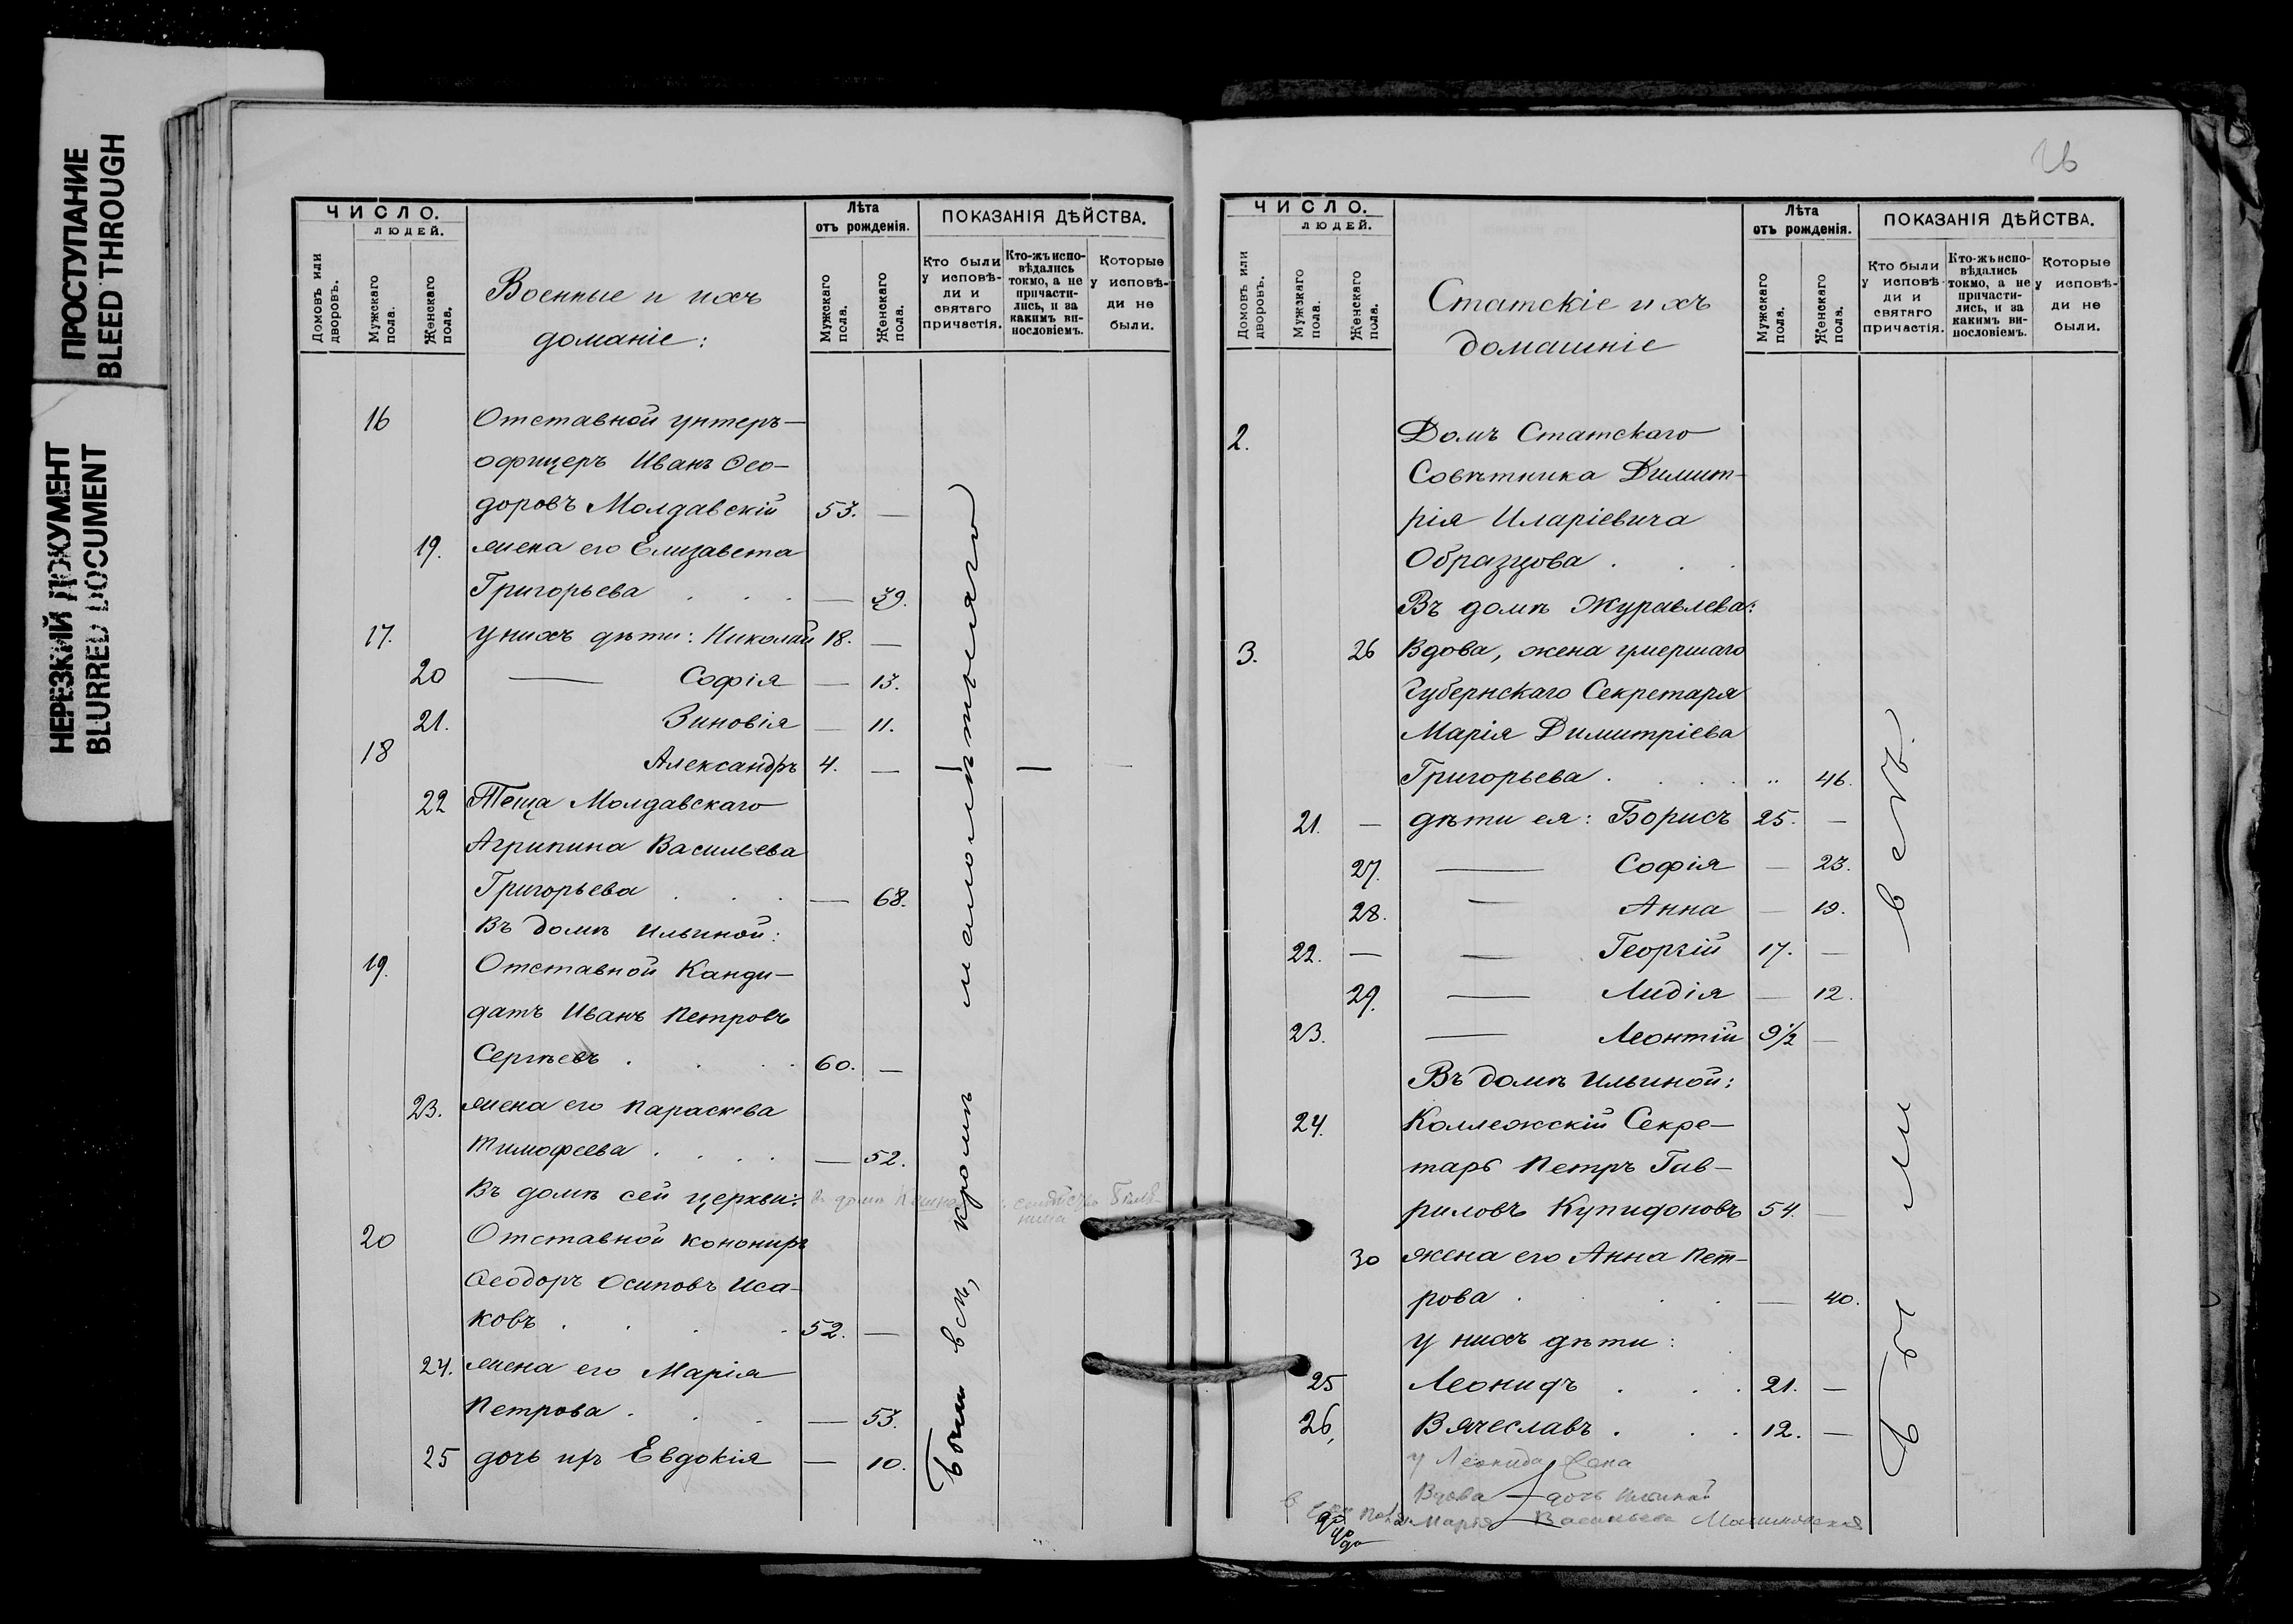 ПРОСТУПАНИЕ
BLEED THROUGH
НЕРЕЗКИЙ ДОКУМЕНТ
BLURRED DOCUMENT
ЧИСЛО.
ЛЮДЕЙ.
Домовъ или дворовъ.
Мужскаго пола.
Женскаго пола.
Военные и ихъ
домашніе:
Лѣта
отъ рожденія.
Мужскаго пола.
Женскаго пола.
ПОКАЗАНІЯ ДѢЙСТВА.
Кто были у исповѣди и святаго причастія.
Кто-жъ исповѣдались токмо, а не причастились, и за какимъ винословіемъ.
Которые у исповѣди не были.
16 Отставной унтеръ-
офицеръ Иванъ Ѳео-
доровъ Молдавскій 53. —
19. жена его Елизавета
Григорьева . . . — 39.
17. у нихъ дѣти: Николай 18. —
20 — Софія — 13.
21. Зиновія — 11.
18 Александръ 4. — — — —
22 Теща Молдавскаго
Агрипина Васильева
Григорьева . . . — 68.
Въ домѣ Ильиной:
19. Отставной Канди-
датъ Иванъ Петровъ
Сергѣевъ . . . 60. —
23. жена его Параскева
Тимофеева . . . . — 52.
Въ домѣ сей церкви:
20 Отставной конониръ
Ѳеодоръ Осиповъ Иса-
ковъ . . . . 52. —
24. жена его Марія
Петрова . . . — 53.
25 дочь ихъ Евдокія — 10.
Были всѣ, кромѣ малолѣтняго
26
ЧИСЛО.
ЛЮДЕЙ.
Домовъ или дворовъ.
Мужскаго пола.
Женскаго пола.
Статскіе ихъ
домашніе
Лѣта
отъ рожденія.
Мужскаго пола.
Женскаго пола.
ПОКАЗАНІЯ ДѢЙСТВА.
Кто были у исповѣди и святаго причастія.
Кто-жъ исповѣдались токмо, а не причастились, и за какимъ винословіемъ.
Которые у исповѣди не были.
2. Домъ Статскаго
Совѣтника Димит-
рія Иларіевича
Образцова . . .
Въ домѣ Журавлева:
3. 26 Вдова, жена умершаго
Губернскаго Секретаря
Марія Димитріева
Григорьева . . . „ 46.
21. — дѣти ея: Борисъ 25. —
27. — Софія — 23.
28. — Анна — 19.
22. — — Георгій 17. —
29. — Лидія — 12.
23. — Леонтій 9½ —
Въ домѣ Ильиной:
24. Коллежскій Секре-
тарь Петръ Гав-
риловъ Купидоновъ 54. —
30 жена его Анна Пет-
рова . . . . — 40.
у нихъ дѣти:
25 Леонидъ . . . 21. —
26, Вячеславъ . . . 12. —
у Леонида
Вдова — дочь Ильиной
Марія Васильева
Были всѣ.